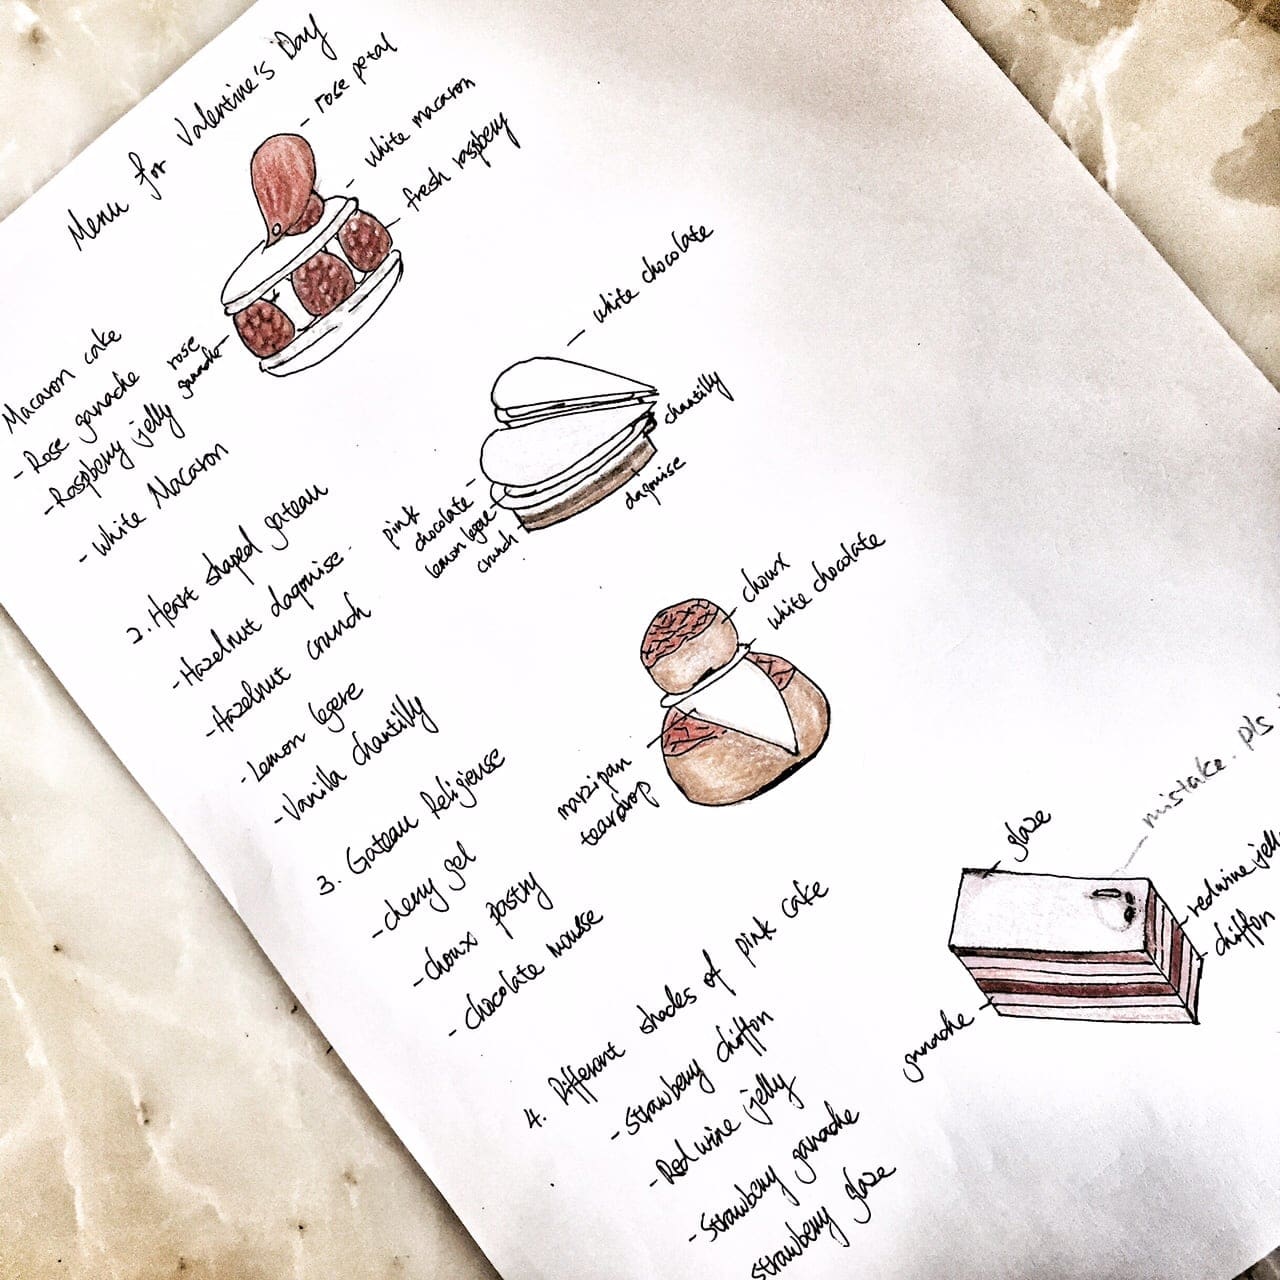 Menu for Valentine's Day
rose petal
white macaron
fresh raspberry
rose
ganache
Macaron cake
- Rose ganache
- Raspberry jelly
- White Macaron
white chocolate
chantilly
daqouise
pink
chocolate
lemon legere
crunch
2. Heart shaped gateau
- Hazelnut daqouise
- Hazelnut crunch
- Lemon legere
- Vanilla chantilly
choux
white chocolate
marzipan
teardrop
3. Gateau Religieuse
- cherry gel
- choux pastry
- chocolate mousse
mistake. pls
glaze
redwine jelly
chiffon
ganache
4. Different shades of pink cake
- Strawberry chiffon
- Red wine jelly
- Strawberry ganache
strawberry glaze